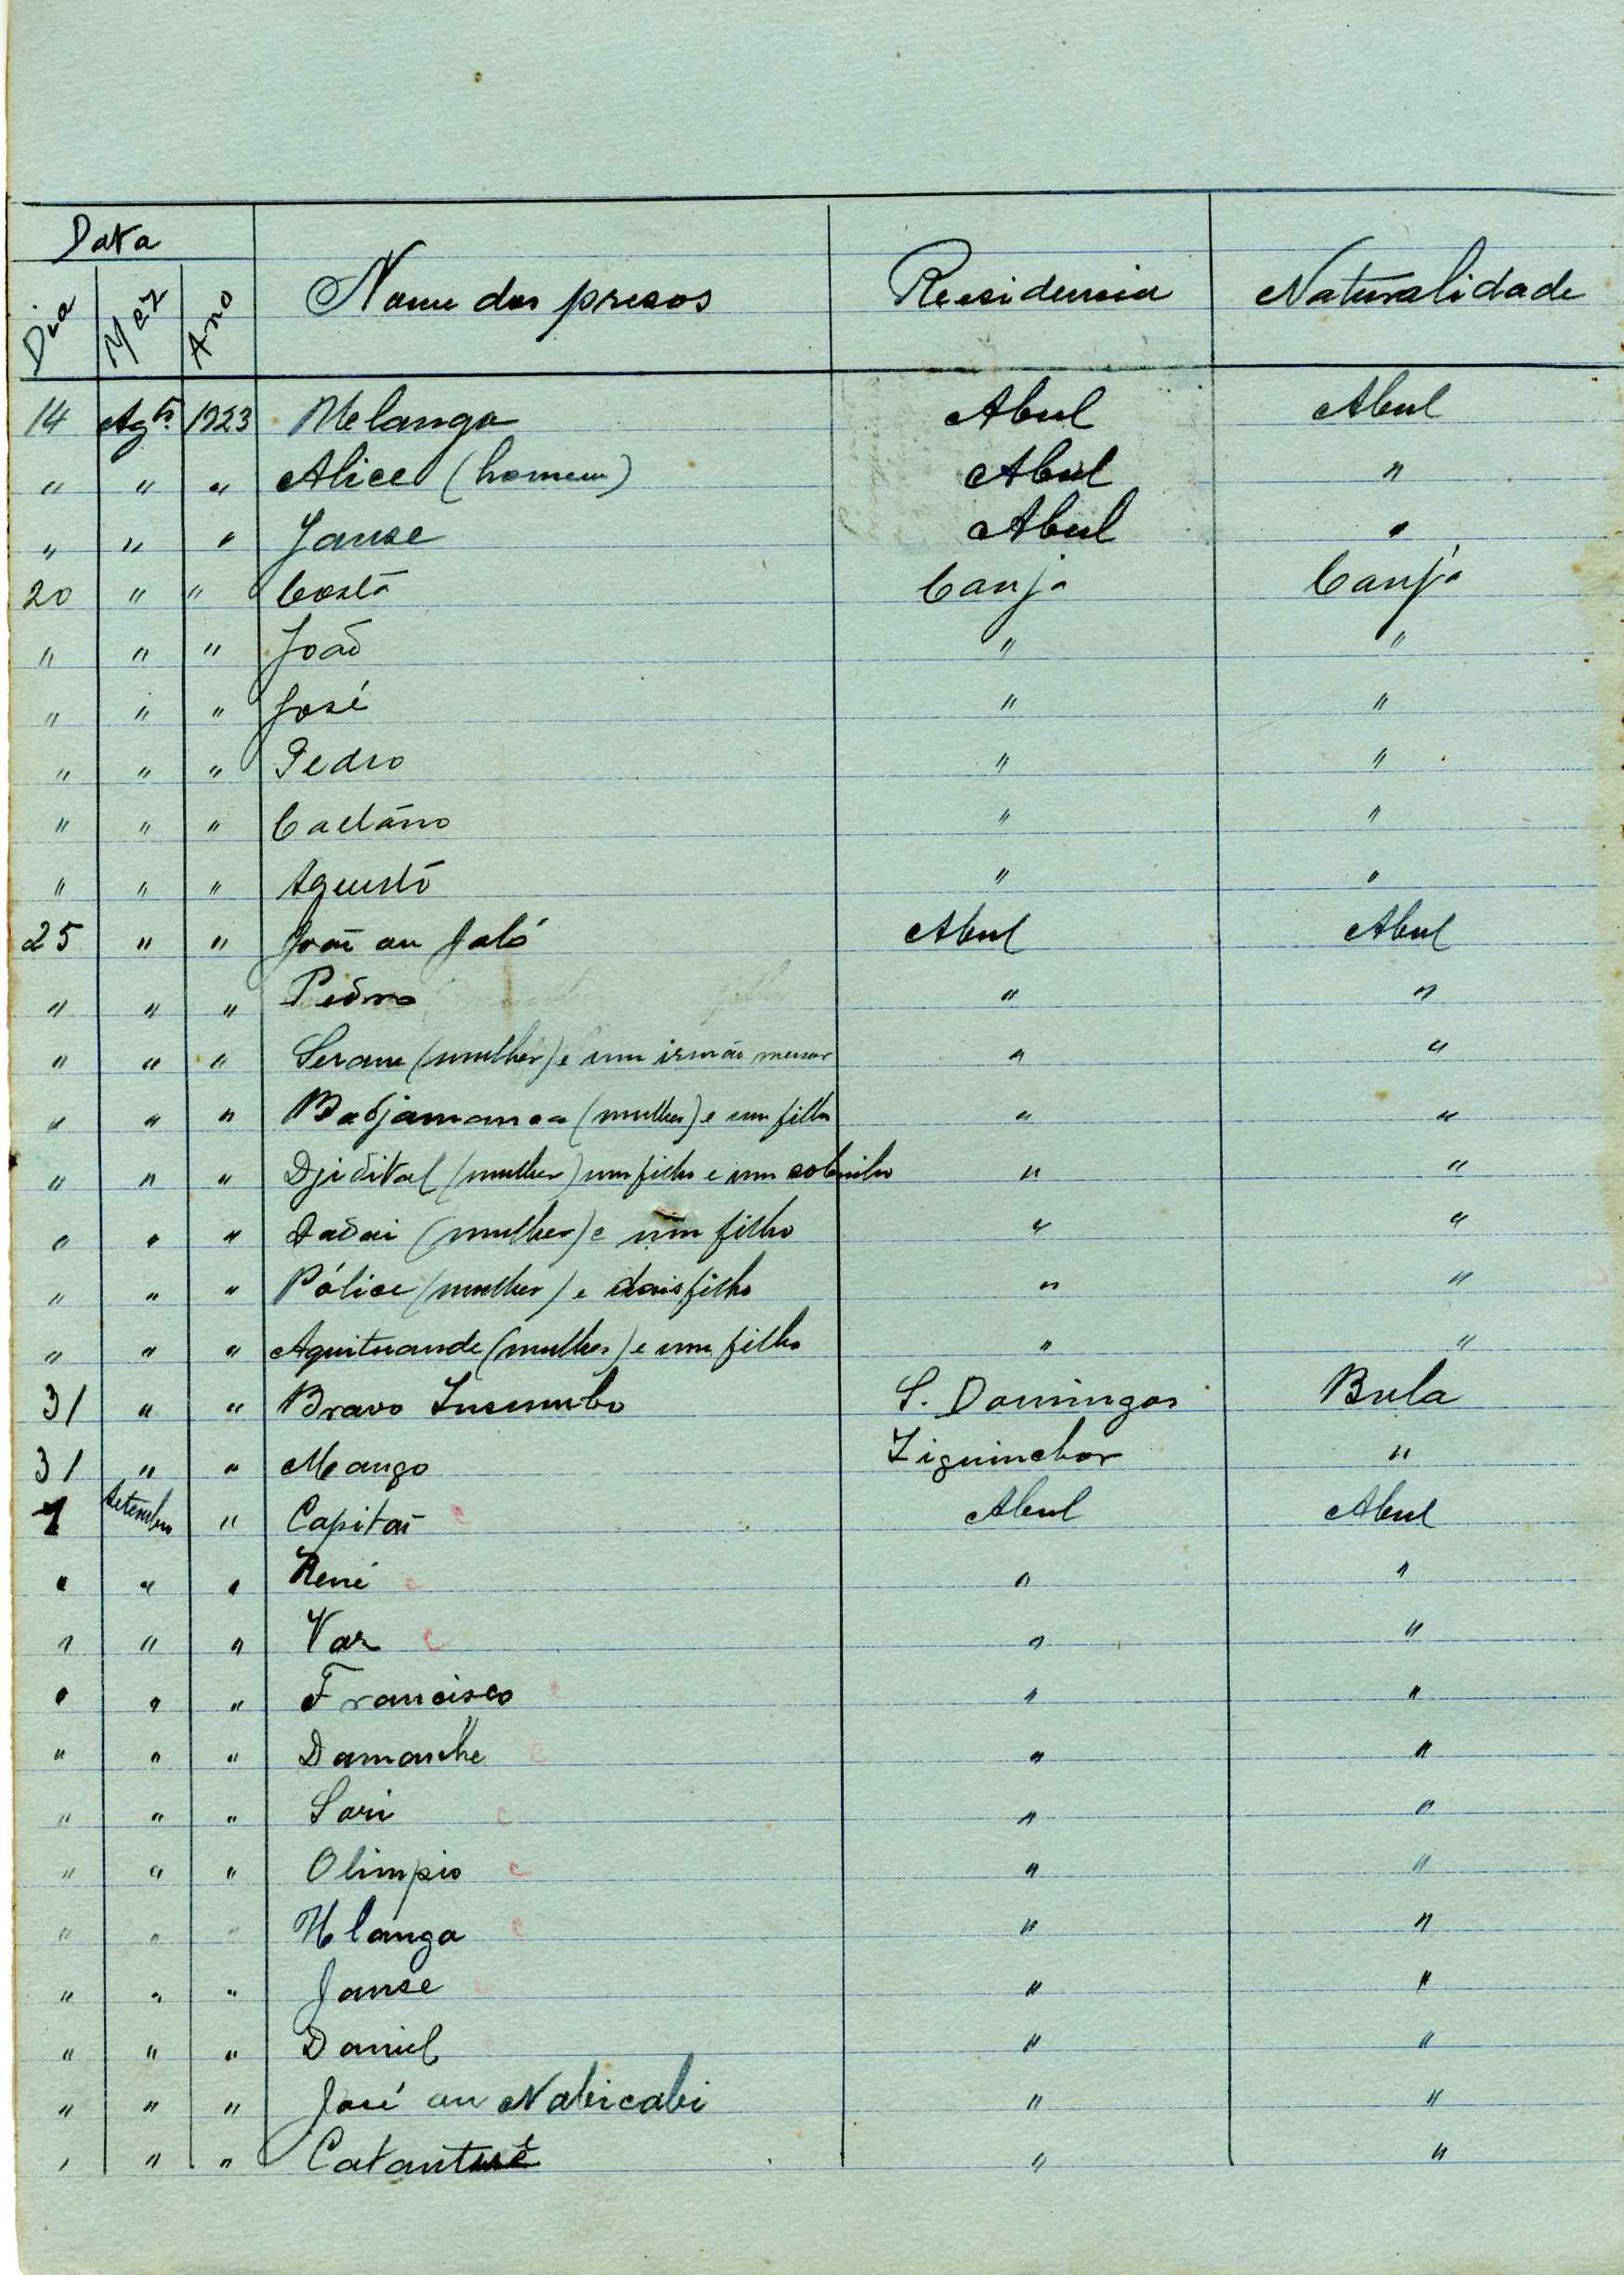 Data
Dia Mêz Ano Nome dos presos Reesidencia Naturalidade
14 Agto. 1923 Melanga Abul Abul
" " " Alice (homem) Abul "
" " " Janse Abul "
20 " " Costa Canja Canjá
" " " João " "
" " " José " "
" " " Pedro " "
" " " Caetano " "
" " " Agusto " "
25 " " João ou Jaló Abul Abul
" " " Pedro " "
" " " Serane (mulher) e um irmão menor " "
" " " Badjamanca (mulher) e um filho " "
" " " Djidital (mulher) um filho e um sobrinho " "
" " " Dadai (mulher) e um filho " "
" " " Pólice (mulher) e dois filho " "
" " " Aquituande (mulher) e um filho " "
31 " " Bravo Insumbo S. Domingos Bula
31 " " Mango Ziguinchor "
1 Setembro " Capitão c Abul Abul
" " " René c " "
" " " Vaz c " "
" " " Francisco " "
" " " Damanhe c " "
" " " Sari c " "
" " " Olimpio c " "
" " " Hlanga c " "
" " " Janse " "
" " " Daniel " "
" " " José ou Nabicabi " "
" " " " "